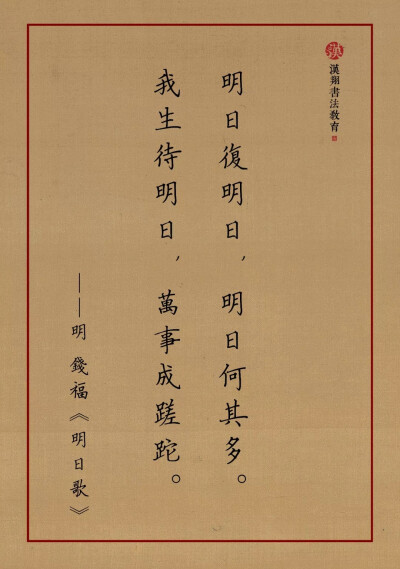 漢翔書法教育
明日復明日，明日何其多。
我生待明日，萬事成蹉跎。
——明 錢福《明日歌》